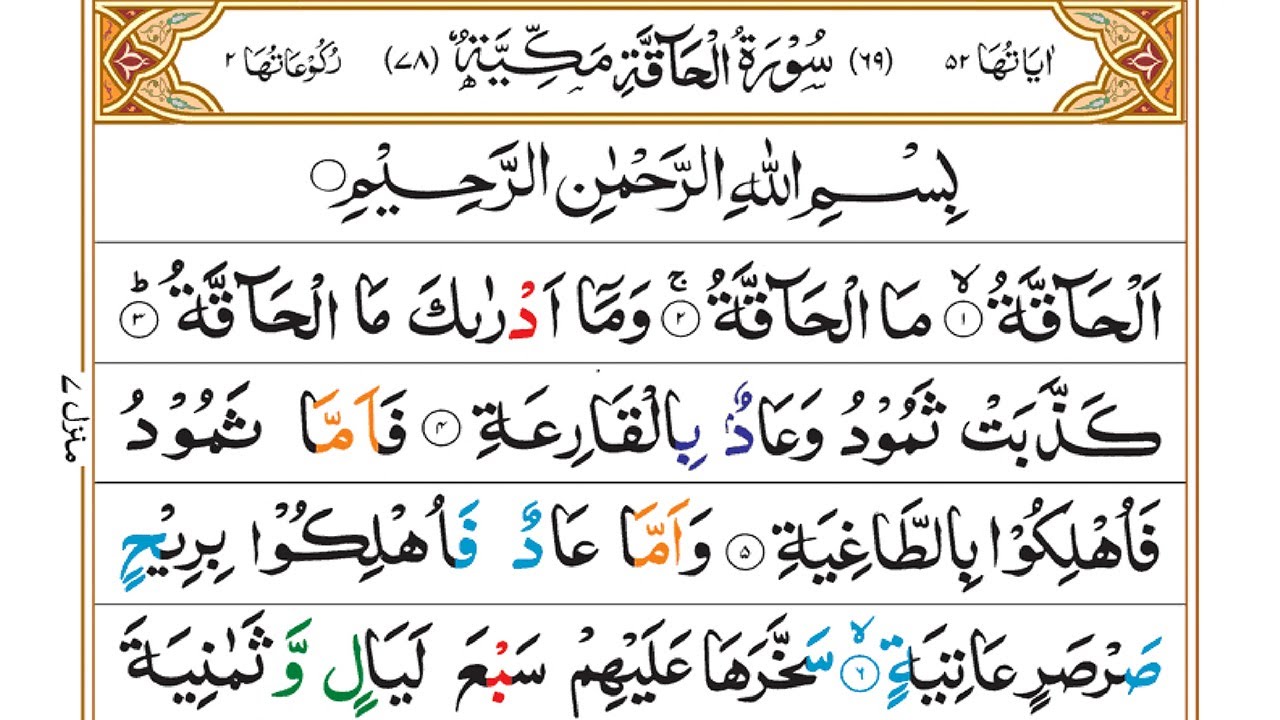 اٰيَاتُهَا ٥٢ (٦٩) سُوْرَةُ الْحَآقَّةِ مَكِّيَّةٌ (٧٨) رُكُوْعَاتُهَا ٢
بِسْمِ اللّٰهِ الرَّحْمٰنِ الرَّحِيْمِ
اَلْحَآقَّةُ ۙ ١ مَا الْحَآقَّةُ ۚ ٢ وَمَآ اَدْرٰىكَ مَا الْحَآقَّةُ ؕ ٣
كَذَّبَتْ ثَمُوْدُ وَعَادٌۢ بِالْقَارِعَةِ ٤ فَاَمَّا ثَمُوْدُ
فَاُهْلِكُوْا بِالطَّاغِيَةِ ٥ وَاَمَّا عَادٌ فَاُهْلِكُوْا بِرِيْحٍ
صَرْصَرٍ عَاتِيَةٍ ۙ ٦ سَخَّرَهَا عَلَيْهِمْ سَبْعَ لَيَالٍ وَّثَمٰنِيَةَ
منزل ٧